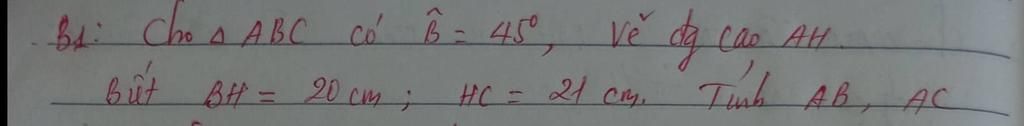 B1: Cho △ ABC có B̂ = 45°, Vẽ đg cao AH.
Biết BH = 20 cm; HC = 21 cm. Tính AB, AC